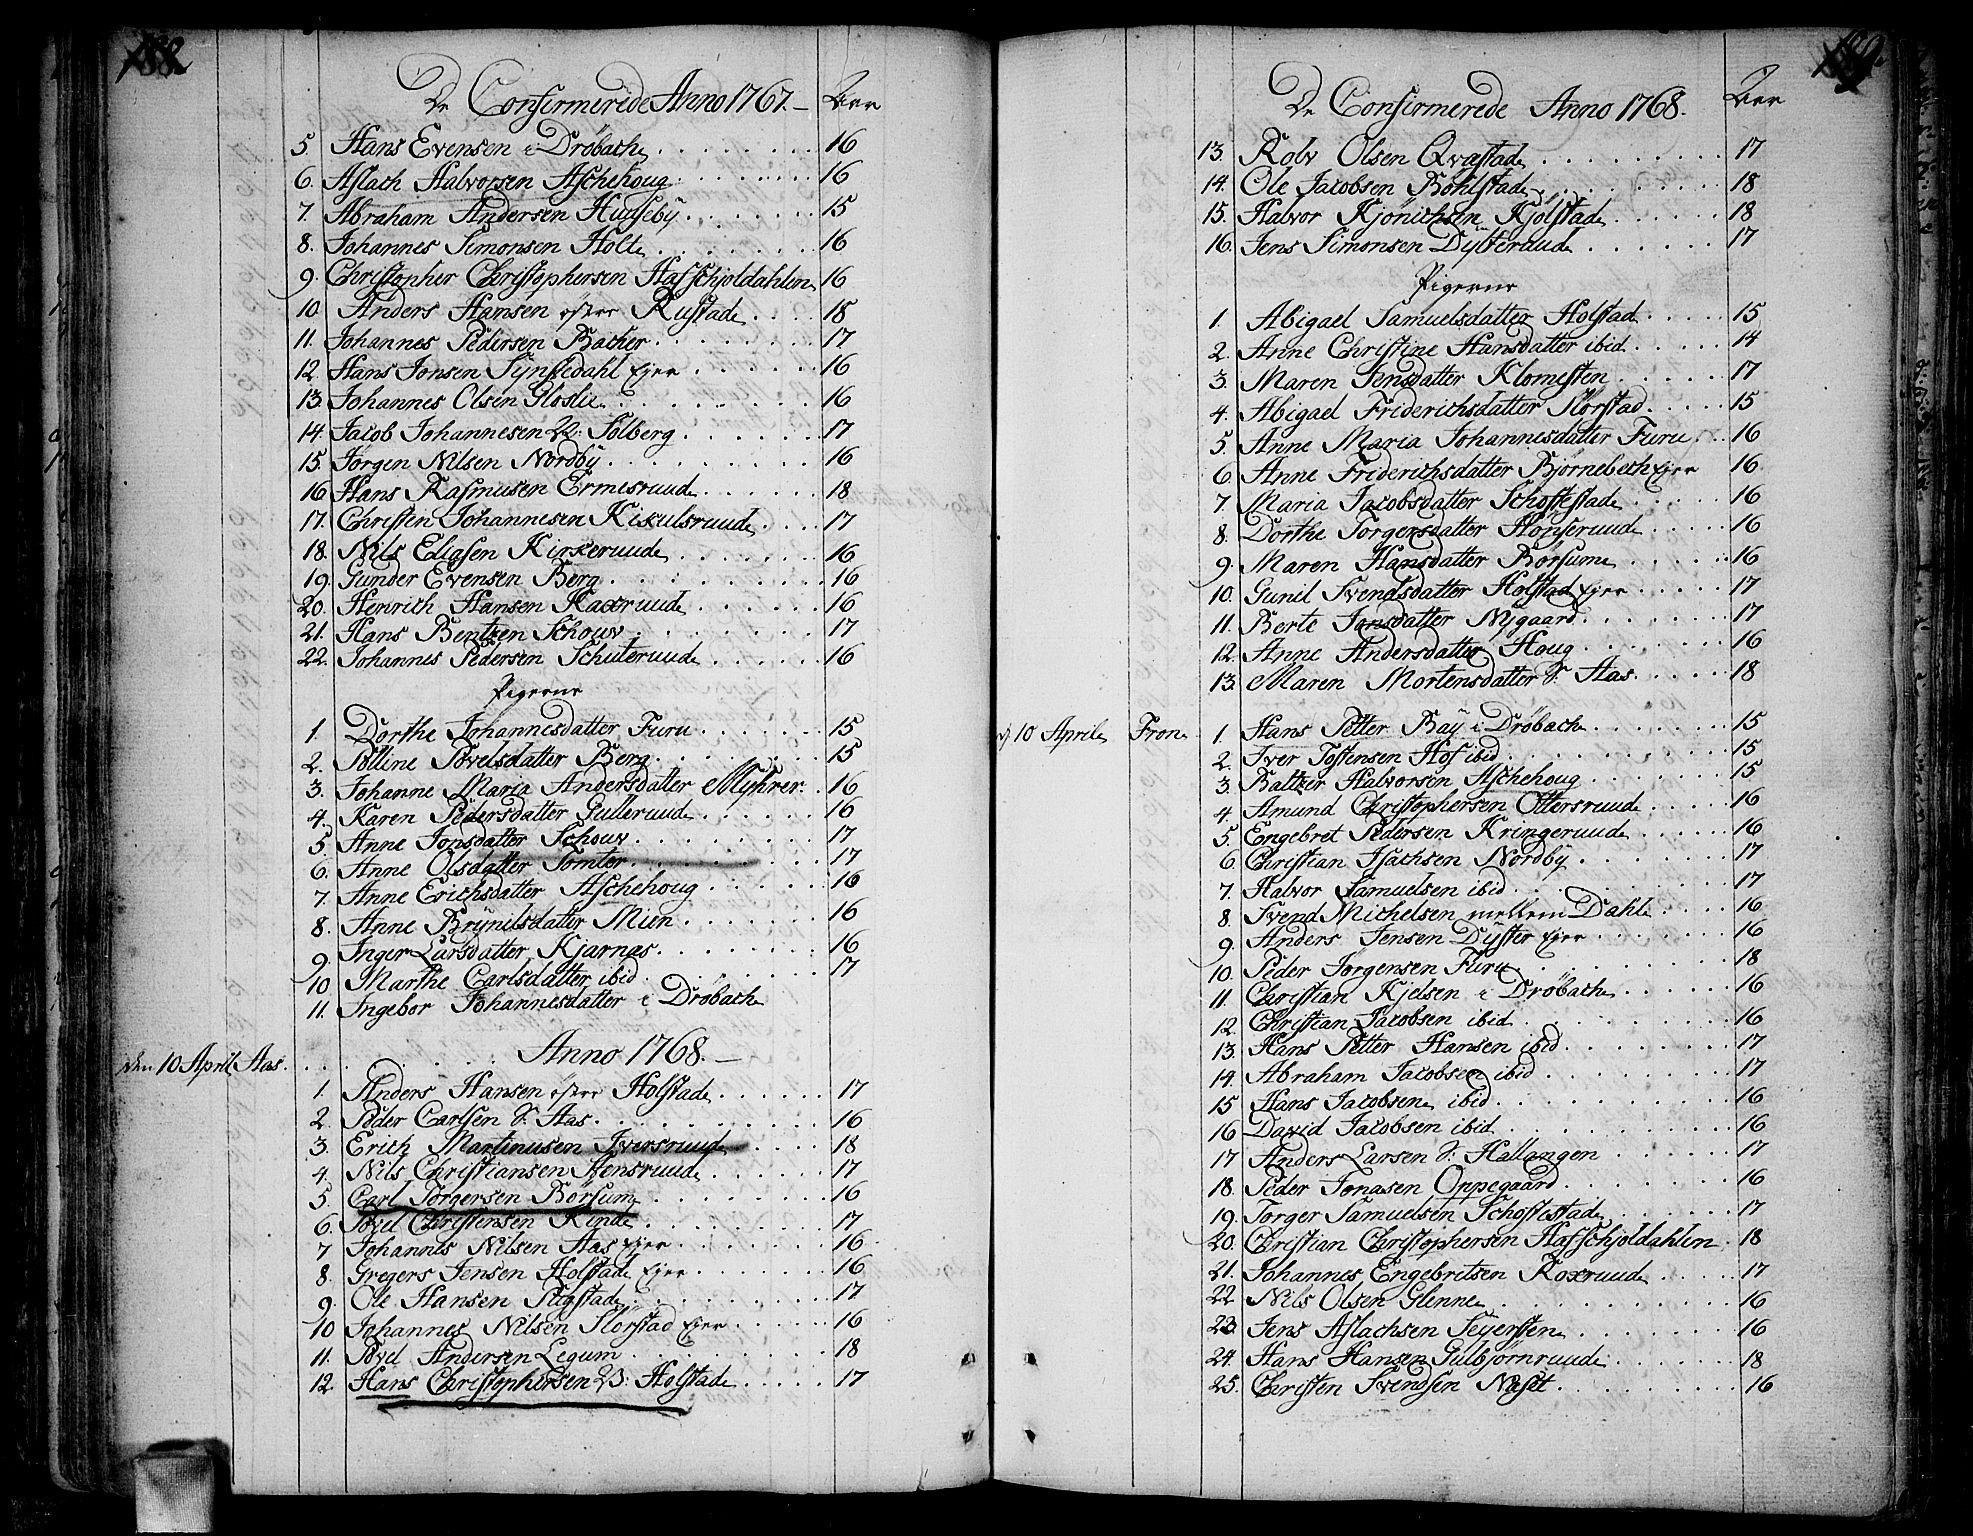 188.
De Confirmerede Anno 1767. — Aar
5. Hans Evensen i Drøbach 16
6. Aslach Halvorsen Aschehoug 16
7. Abraham Andersen Huuseby 15
8. Johannes Simonsen Holt 16
9. Christopher Christophersen Hafschjoldahlen 16
10. Anders Hansen østre Rustad 18
11. Johannes Pedersen Bacher 17
12. Hans Jonsen Synstedahl Ejer 16
13. Johannes Olsen Gloslie 16
14. Jacob Johannesen Solberg 17
15. Jørgen Nilsen Nordby 16
16. Hans Rasmusen Ermesruud 18
17. Christen Johannesen Kixulsruud 17
18. Nils Eliasen Kirkeruud 16
19. Gunder Evensen Berg 16
20. Henrich Hansen Kaxruud 16
21. Hans Bentzen Schouv 17
22. Johannes Pedersen Schuteruud 16
Pigerne
1. Dorthe Johannesdatter Furu 15
2. Pølline Povelsdatter Berg 15
3. Johanne Maria Andersdatter Myhrer 16
4. Karen Pedersdatter Gulleruud 16
5. Anne Jonsdatter Schouv 17
6. Anne Olsdatter Tomter 17
7. Anne Erichsdatter Aschehoug 16
8. Anne Brynilsdatter Mien 16
9. Inger Larsdatter Kjærnæs 16
10. Marthe Carlsdatter ibid 17
11. Ingebor Johannesdatter i Drøbach
Anno 1768. —
den 10 April Aas.
1. Anders Hansen østre Holstad 17
2. Peder Carlsen S. Aas 16
3. Erich Martinusen Iversruud 18
4. Nils Christiansen Stensruud 17
5. Carl Torgersen Borsum 16
6. Povel Christensen Rinde 17
7. Johannes Nilsen Aas Ejer 16
8. Gregers Jensen Holstad Ejer 16
9. Ole Hansen Rigstad 17
10. Johannes Nilsen Storstad Ejer 16
11. Povel Andersen Legum 18
12. Hans Christophersen Holstad 17
189.
De Confirmerede Anno 1768. Aar
13. Rolv Olsen Qvæstad 17
14. Ole Jacobsen Bohlstad 18
15. Halvor Kjønichsen Kjølstad 18
16. Jens Simonsen Dysteruud 17
Pigerne
1. Abigael Samuelsdatter Holstad 15
2. Anne Christine Hansdatter ibid 14
3. Maren Jensdatter Klomesten 17
4. Abigael Friderichsdatter Storstad 15
5. Anne Maria Johannesdatter Furu 16
6. Anne Friderichsdatter Bjørnebech Ejer 16
7. Maria Jacobsdatter Schoftestad 16
8. Dorthe Torgersdatter Honseruud 16
9. Maren Hansdatter Borsum 16
10. Gunil Svendsdatter Holstad Ejer 17
11. Berte Jonsdatter Nygaard 17
12. Anne Andersdatter Houg 16
13. Maren Mortensdatter S. Aas 18
d 10 April Fron
1. Hans Petter Bay i Drøbach 15
2. Iver Tostensen Hof ibid 15
3. Baltzer Halvorsen Aschehoug 15
4. Amund Christophersen Ottersruud 16
5. Engebret Pedersen Kringeruud 16
6. Christian Isachsen Nordby 17
7. Halvor Samuelsen ibid 17
8. Svend Michelsen mellem Dahl 16
9. Anders Jensen Dyster Ejer 16
10. Peder Jørgensen Furu 18
11. Christian Kjelsen i Drøbach 16
12. Christian Jacobsen ibid 16
13. Hans Petter Hansen ibid 17
14. Abraham Jacobsen ibid 17
15. Hans Jacobsen ibid 16
16. David Jacobsen ibid 16
17. Anders Larsen S. Hallangen 17
18. Peder Jonasen Oppegaard 16
19. Torger Samuelsen Schoftestad 17
20. Christian Christophersen Hafschjoldahlen 18
21. Johannes Engebretsen Roxruud 17
22. Nils Olsen Glenne 16
23. Jens Aslachsen Sejersten 16
24. Hans Hansen Gulbjørnruud 18
25. Christen Svendsen Neset 16